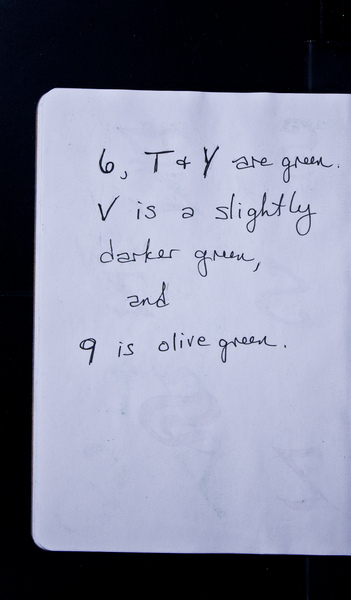 6, T & Y are green.
V is a slightly
darker green,
and
9 is olive green.